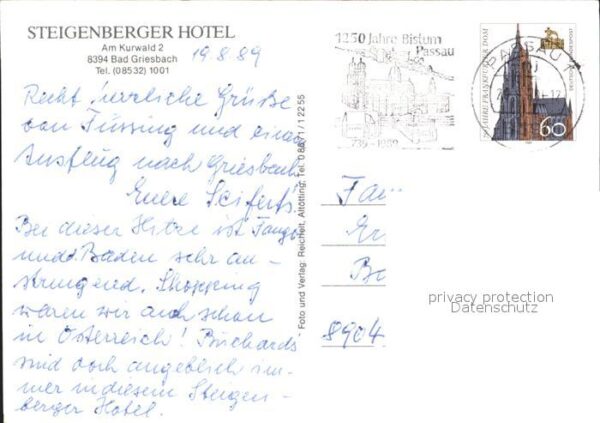 STEIGENBERGER HOTEL
Am Kurwald 2
8394 Bad Griesbach
Tel. (08532) 1001
19.8.89
Recht herzliche Grüße
von Füssing und einen
Ausflug nach Griesbach
Euere Seiferts.
Bei dieser Hitze ist Fango
und Baden sehr an-
stringend. Shopping
waren wir auch schon
in Österreich!
sind doch angeblich im-
mer in diesem Steigen-
berger Hotel.
Foto und Verlag: Reichelt, Altötting, Tel. 08671/12255
1250 Jahre Bistum
Passau
739-1989
PASSAU
JAHRE FRANKFURTER DOM
DEUTSCHE BUNDESPOST
60
Fam
Er
Be
8904
privacy protection
Datenschutz